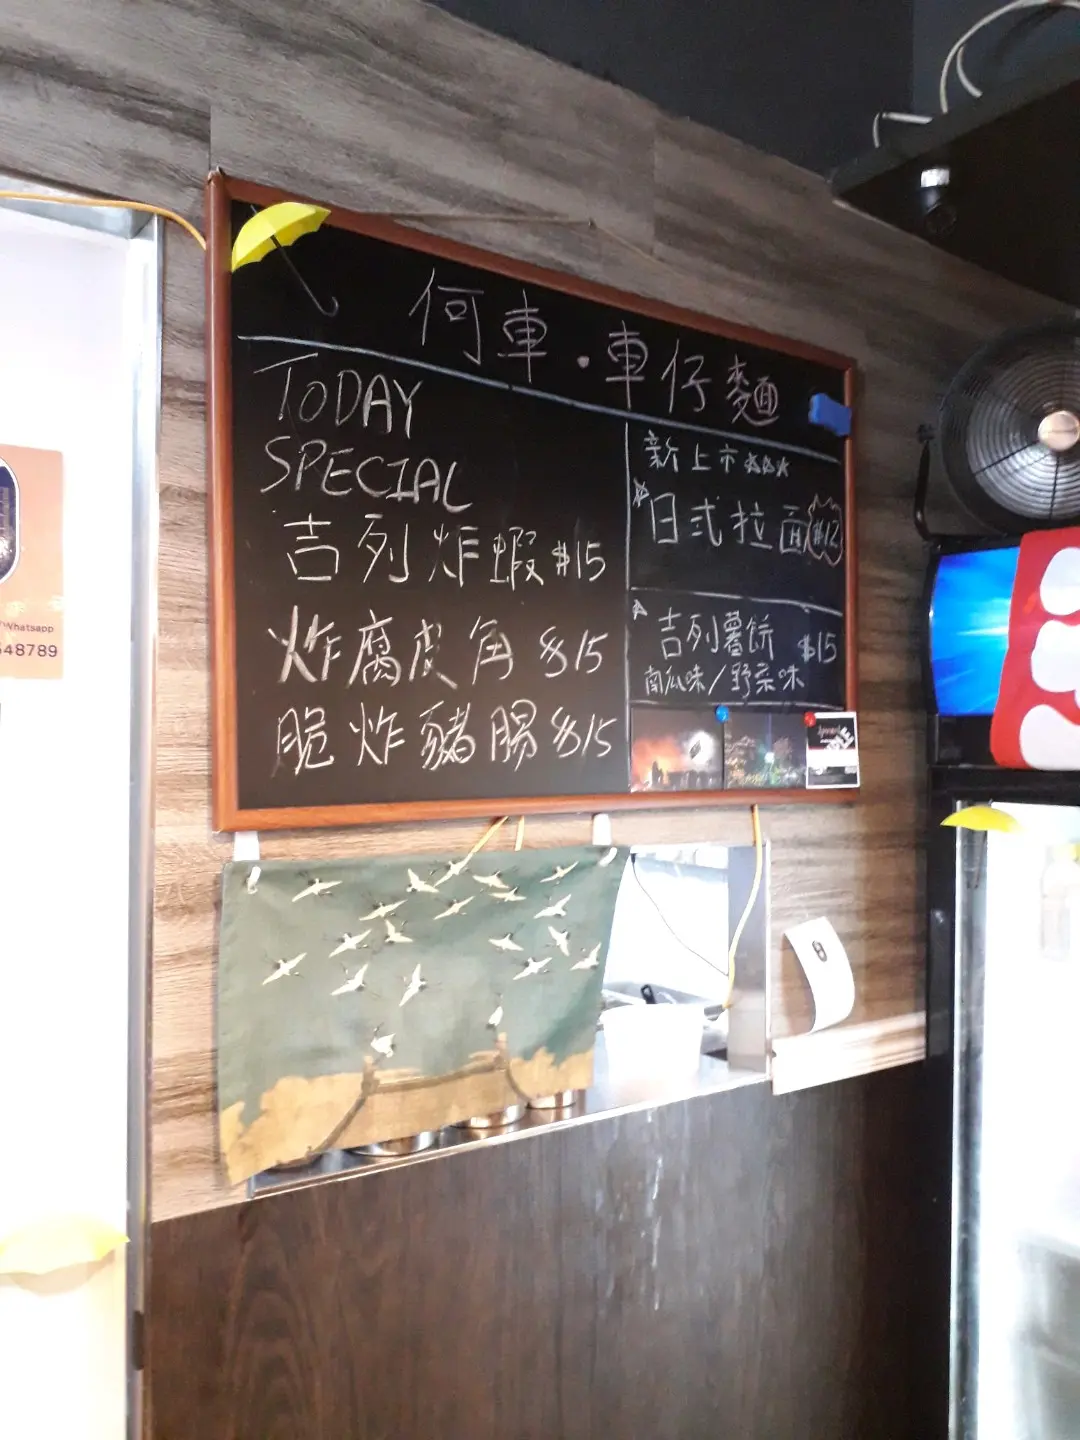 何車·車仔麵
TODAY
SPECIAL
吉列炸蝦 $15
炸腐皮角 $15
脆炸豬腸 $15
新上市☆☆☆
☆日式拉面 $12
☆吉列薯餅 $15
南瓜味/野菜味
Whatsapp
48789
8